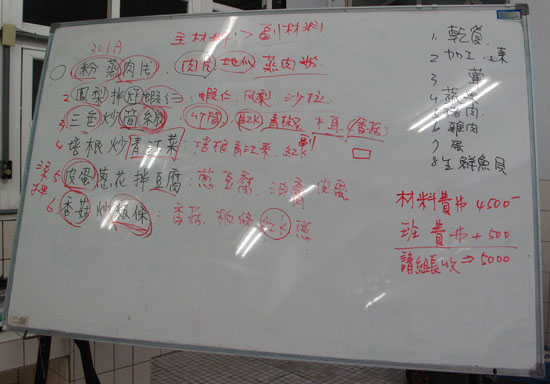 301A
主材料 > 副材料
1. 粉蒸肉片: 肉片 地瓜 蒸肉粉
2 鳳梨拌炸蝦仁: 蝦仁. 鳳梨. 沙拉
3 三色炒筍絲: 竹筍. 紅K 青椒 木耳 (香菇)
4 培根炒青江菜: 培根 青江菜. 紅K
副
涼拌
5 皮蛋蔥花拌豆腐: 蔥 豆腐. 皮蛋
6. 香菇炒粄條: 香菇. 粄條 紅K 蔥
1. 乾貨.
2 加工 素
3 葷
4 蔬果
5 豬肉
6 雞肉
7 蛋
8 生鮮魚貝
材料費 4500-
班費 + 500
請組長收 ⇒ 5000